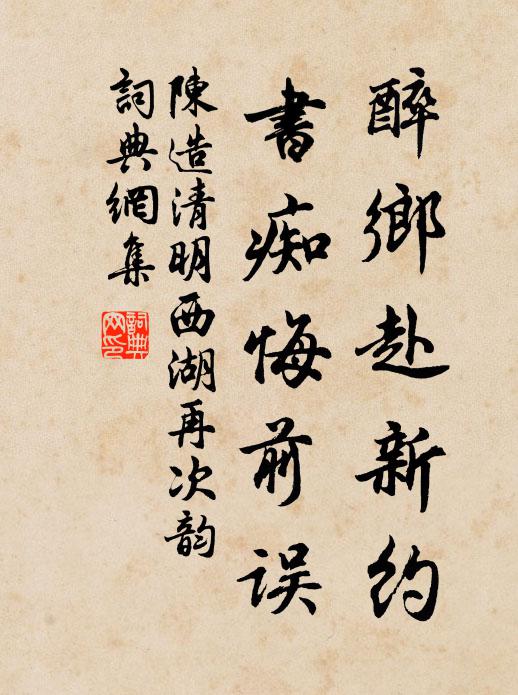 醉鄉赴新約
書痴悔前误
陳造清明西湖再次韵
詞典網集
詞典網印